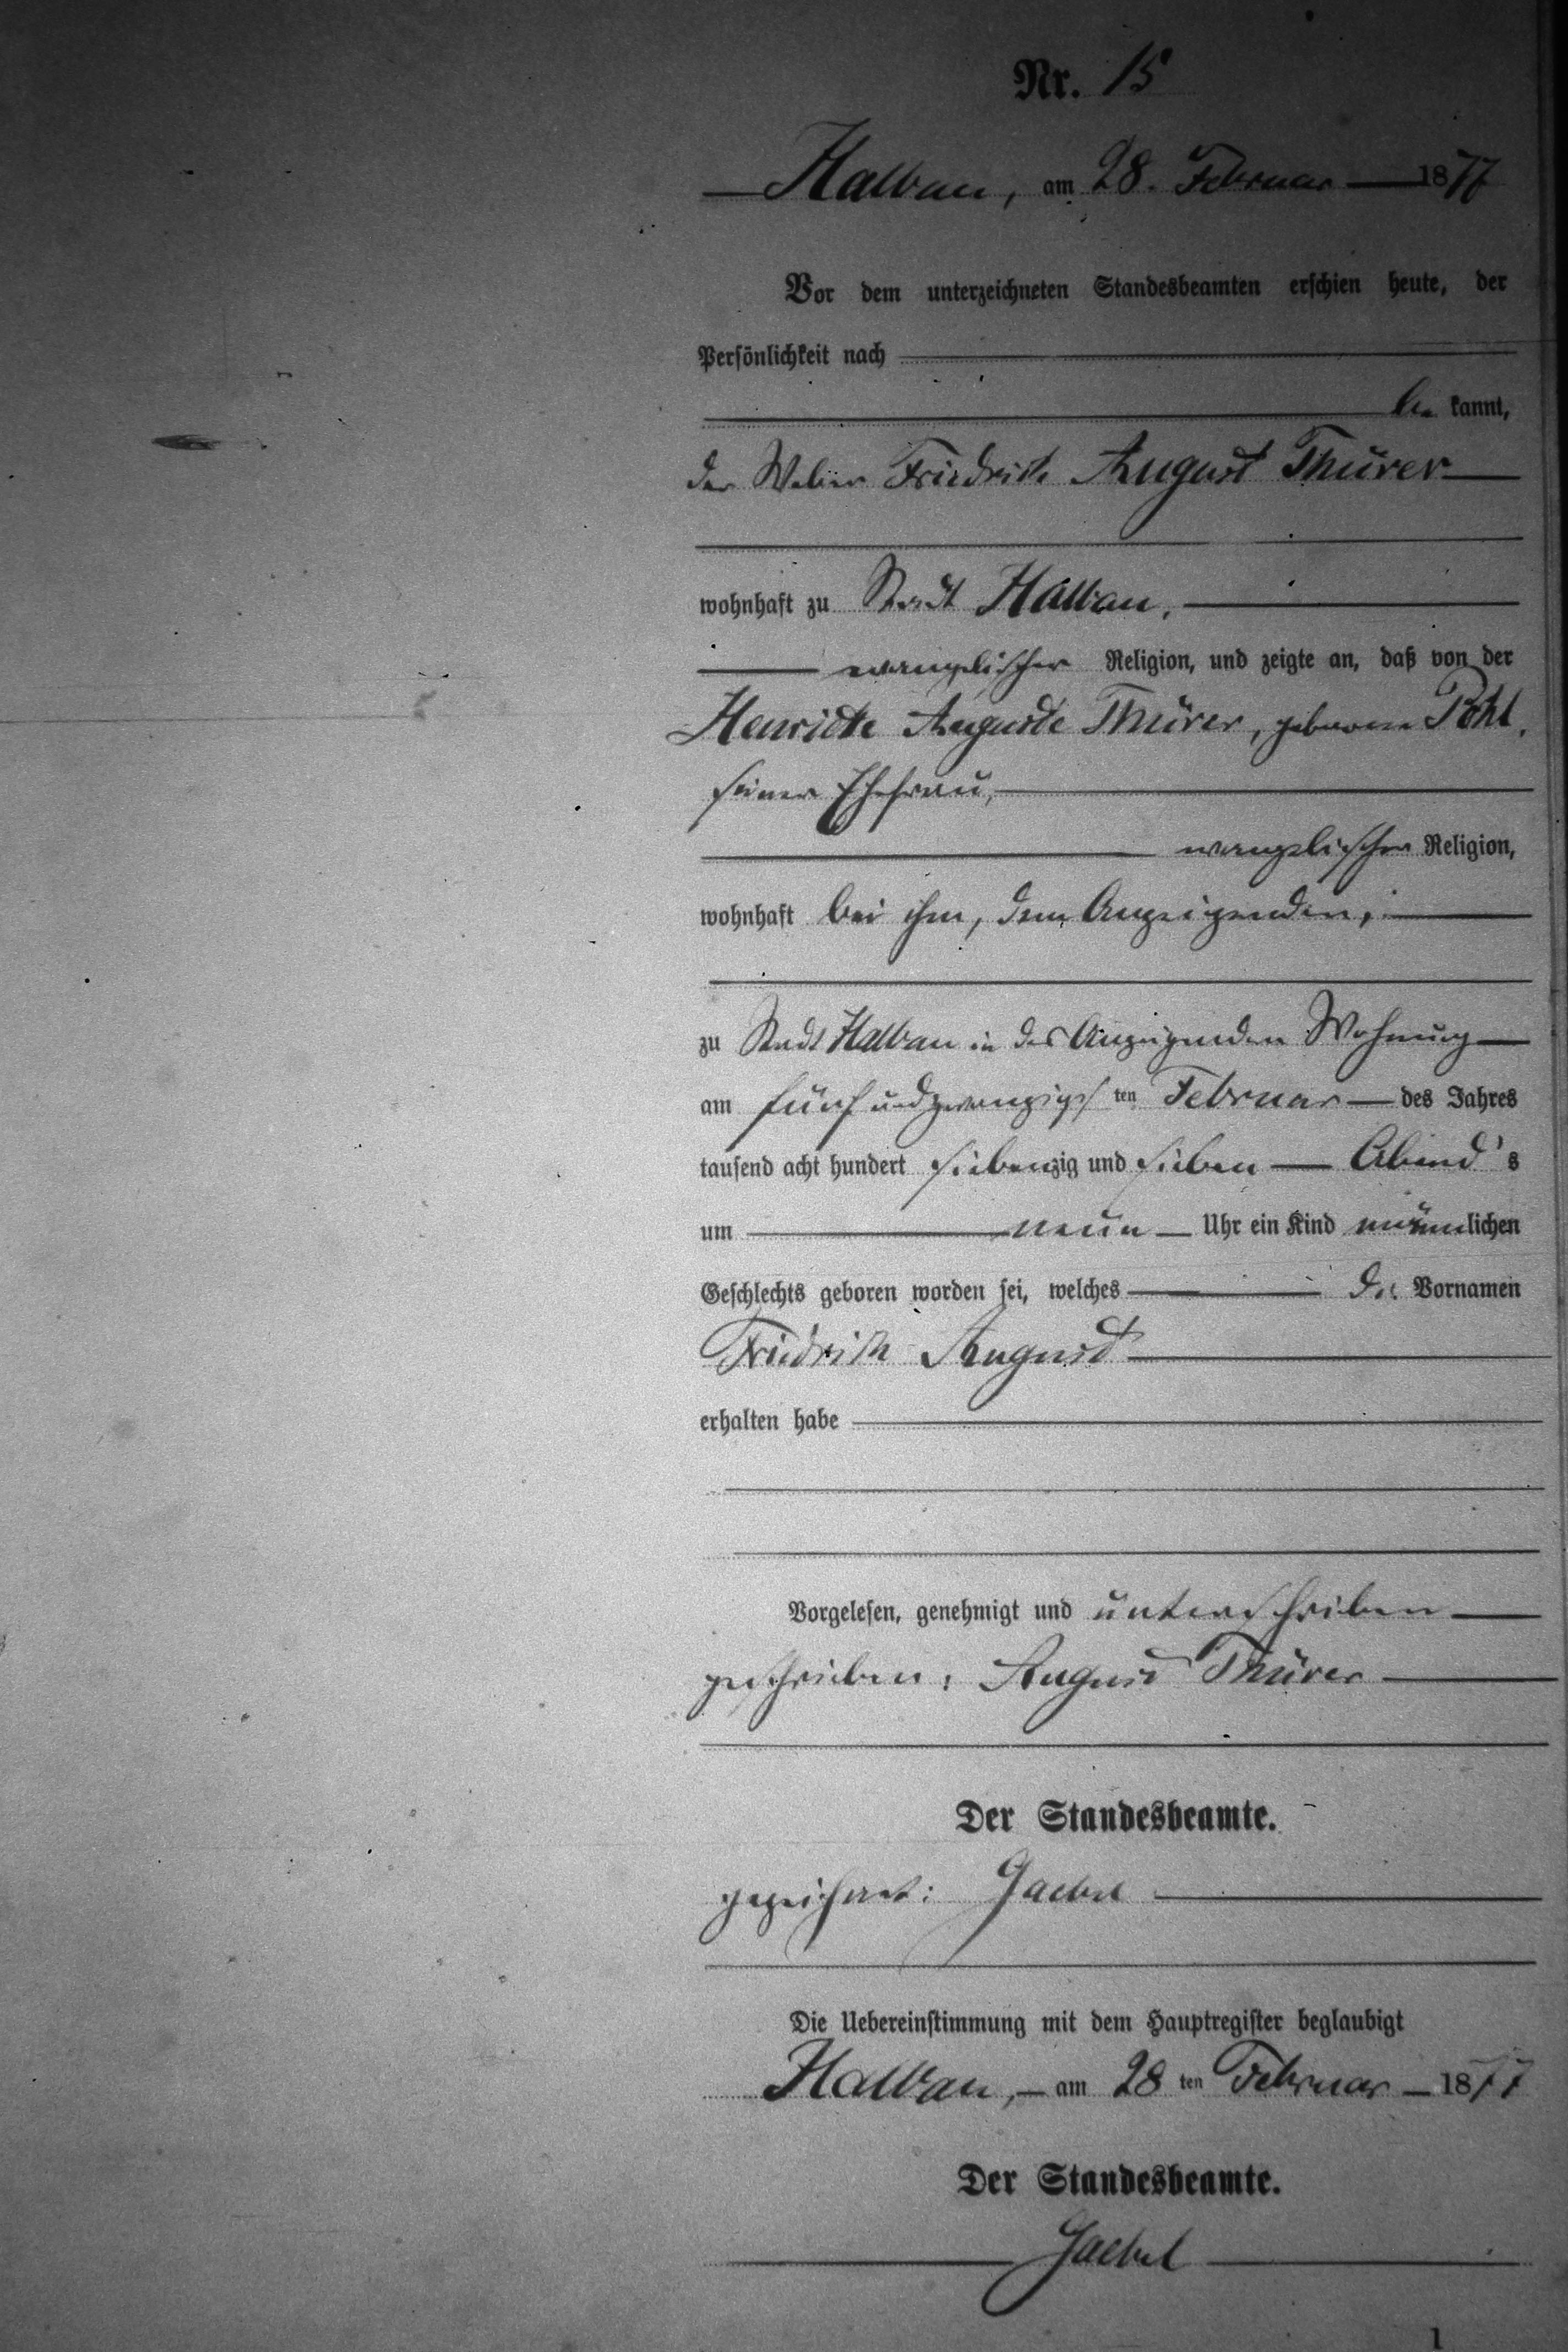 Nr. 15
Halbau, am 28. Februar 1877
Vor dem unterzeichneten Standesbeamten erschien heute, der
Persönlichkeit nach
be kannt,
der Weber Friedrich August Thürer
wohnhaft zu Stadt Halbau,
evangelischer Religion, und zeigte an, daß von der
Henriette Auguste Thürer, geborene Pohl,
seiner Ehefrau,
evangelischer Religion,
wohnhaft bei ihm, dem Anzeigenden,
zu Stadt Halbau in des Anzeigenden Wohnung
am fünf und zwanzigs ten Februar des Jahres
tausend acht hundert siebenzig und sieben Abend's
um neun Uhr ein Kind männlichen
Geschlechts geboren worden sei, welches die Vornamen
Friedrich August
erhalten habe
Vorgelesen, genehmigt und unterschrieben
geschrieben: August Thürer
Der Standesbeamte.
gezeichnet: Gaebel
Die Uebereinstimmung mit dem Hauptregister beglaubigt
Halbau, am 28 ten Februar 1877
Der Standesbeamte.
Gaebel
1